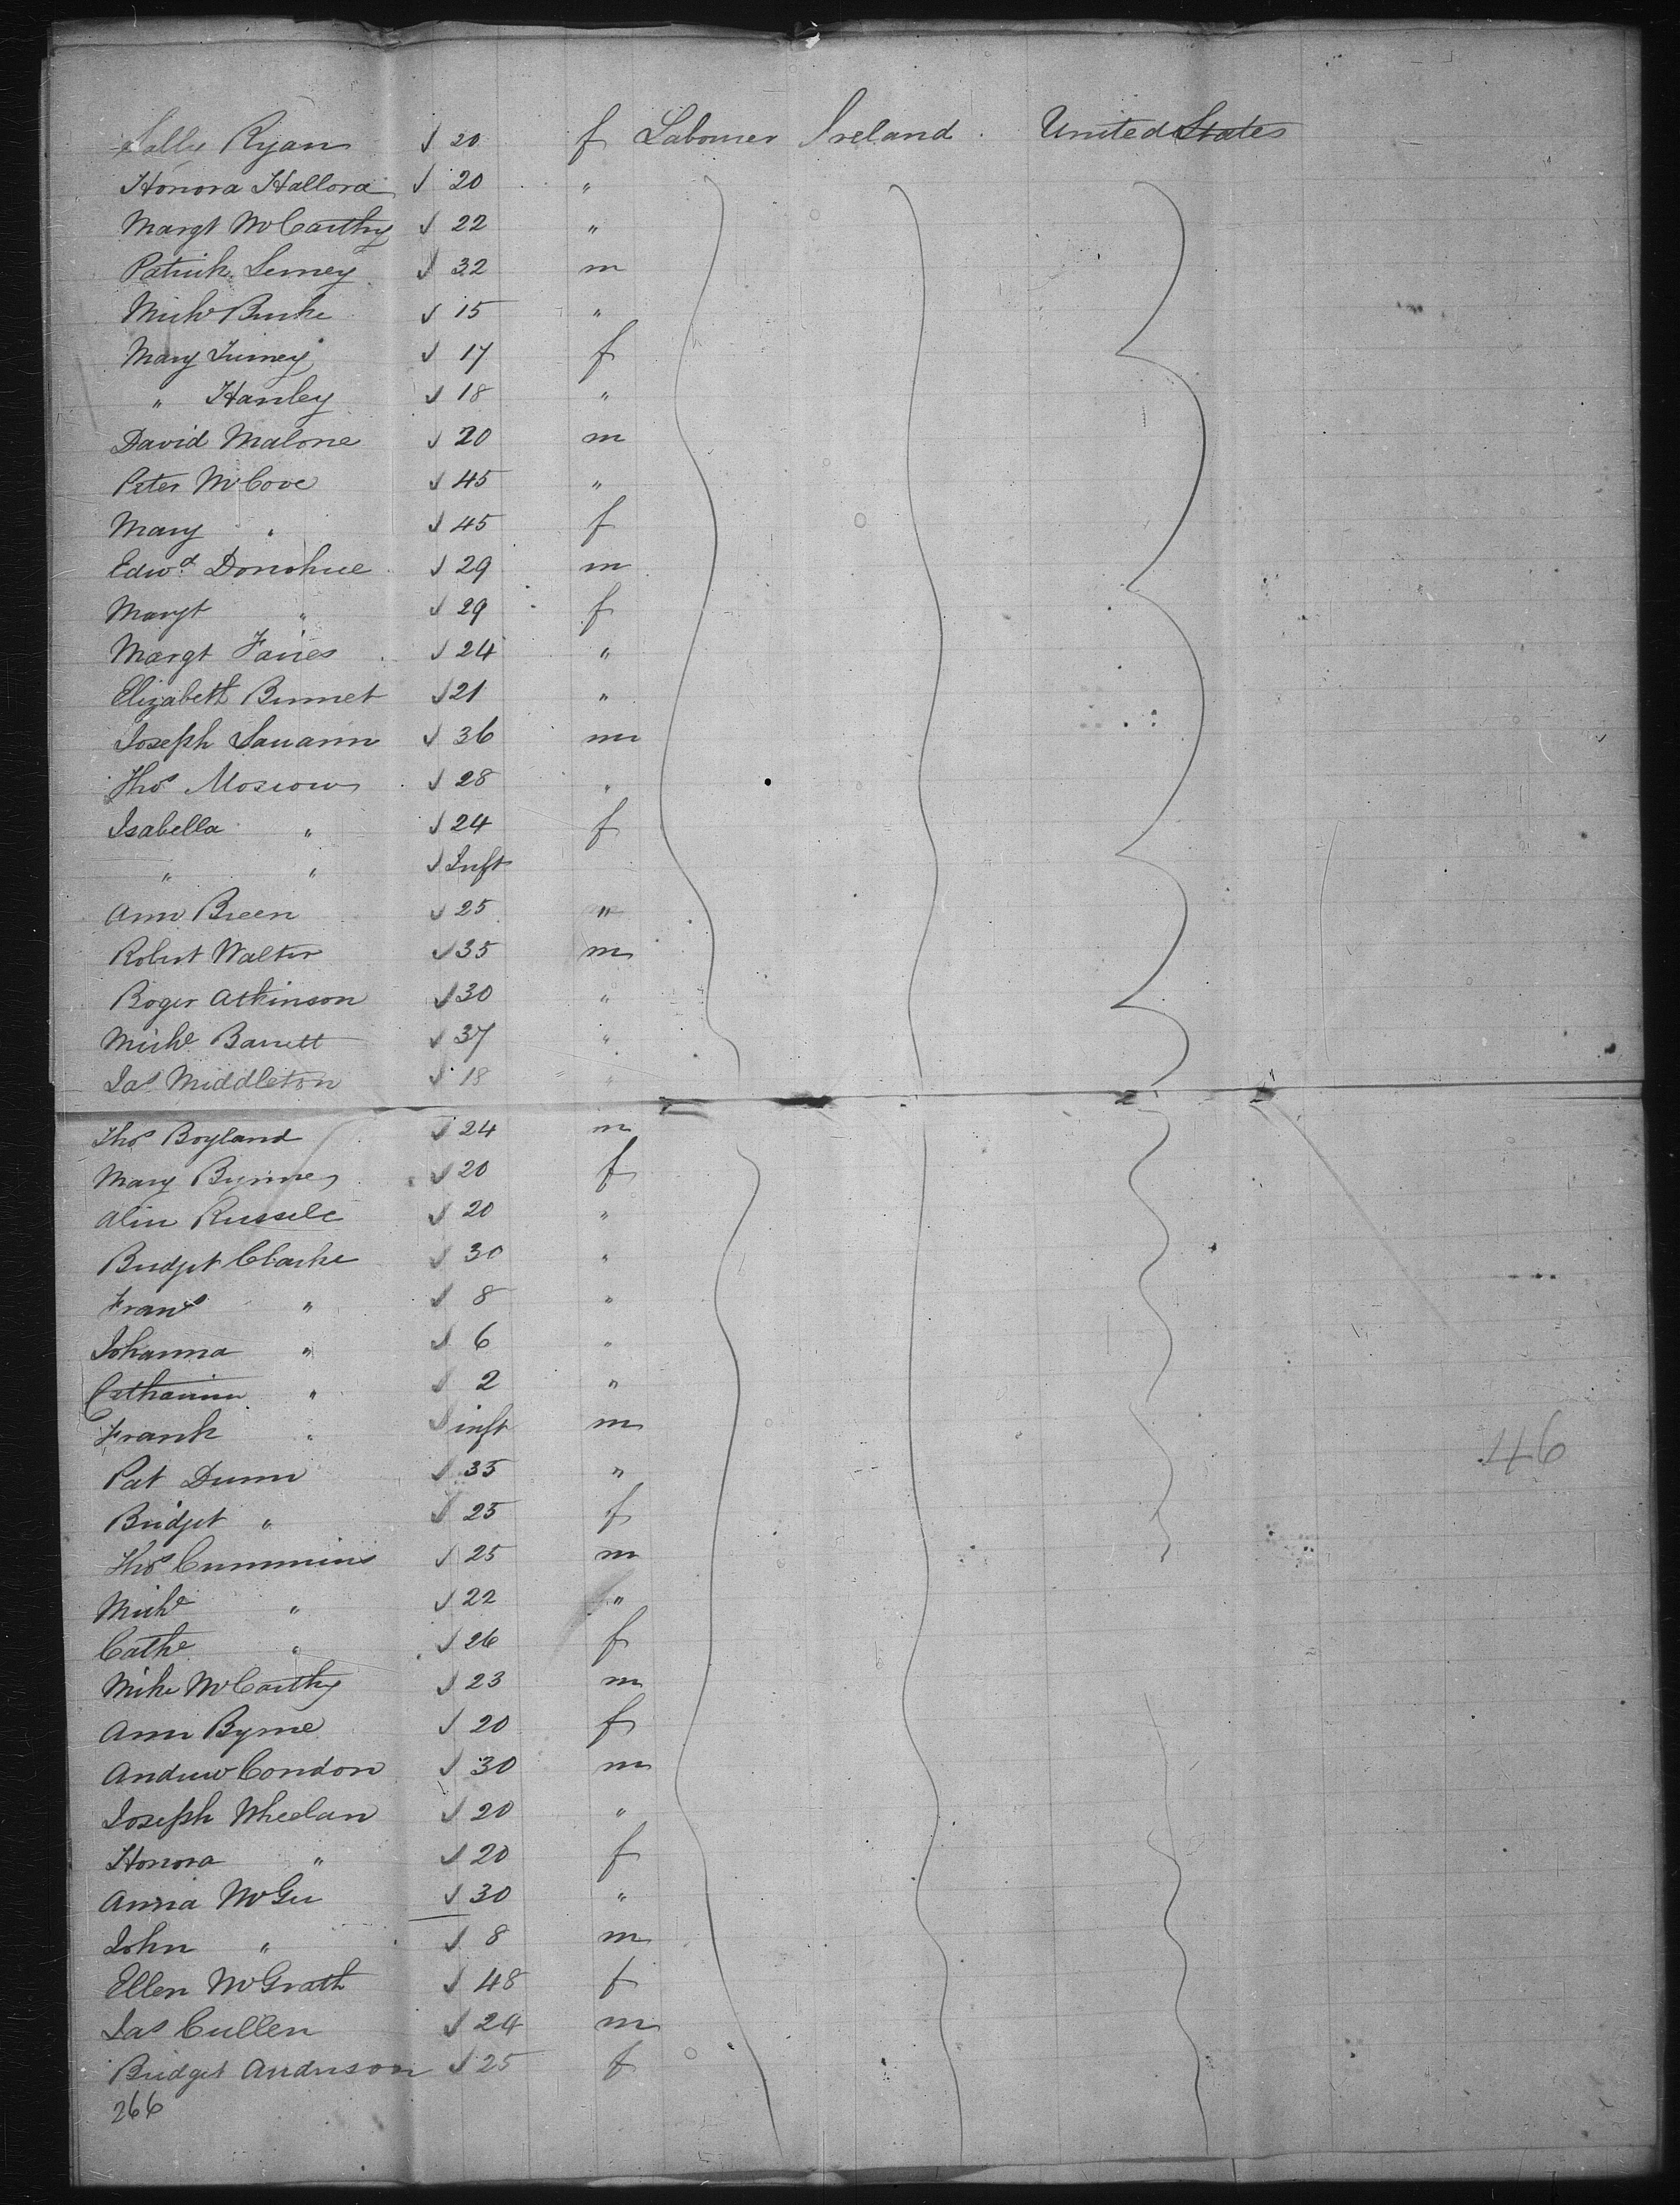 Sally Ryan √ 20 f Labourer Ireland. United States
Honora Hallora √ 20 "
Margt McCarthy √ 22 "
Patrick √ 32 m
Michl Burke √ 15 "
Mary √ 17 f
" Hanley √ 18 "
David Malone √ 20 m
Peter McCove √ 45 "
Mary " √ 45 f
Edwd Donohue √ 29 m
Margt " √ 29 f
Margt √ 24 "
Elizabeth √ 21 "
Joseph √ 36 m
Thos √ 28 "
Isabella " √ 24 f
" " √ Inft
Ann Breen √ 25 "
Robert Walter √ 35 m
Roger Atkinson √ 30 "
Michl Barrett √ 37 "
Jas Middleton √ 18 "
Thos Boyland √ 24 m
Mary Byrnne √ 20 f
Russell √ 20 "
Bridget Clarke √ 30 "
Frans " √ 8 "
Johanna " √ 6 "
Catharine " √ 2 "
Frank " √ inft m
Pat Dunn √ 35 "
Bridget " √ 25 f
Thos Cummins √ 25 m
Michl " √ 22 "
Cathe " √ 26 f
Mike McCarthy √ 23 m
Ann Byrne √ 20 f
Andrew Condon √ 30 m
Joseph Whelan √ 20 "
Honora " √ 20 f
Anna McGee √ 30 "
John " √ 8 m
Ellen McGrath √ 48 f
Jas Cullen √ 24 m
Bridget Anderson √ 25 f
266
146